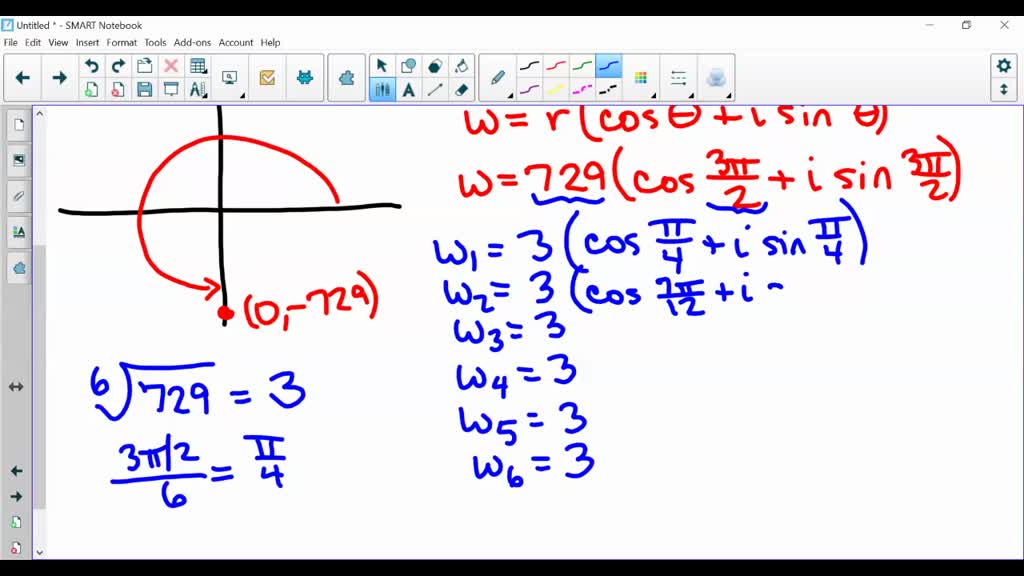 Untitled * - SMART Notebook
File Edit View Insert Format Tools Add-ons Account Help
w = r (cos θ + i sin θ)
w = 729 (cos 3π/2 + i sin 3π/2)
w₁ = 3 (cos π/4 + i sin π/4)
w₂ = 3 (cos 7π/12 + i
w₃ = 3
w₄ = 3
w₅ = 3
w₆ = 3
(0, -729)
⁶√729 = 3
3π/2 / 6 = π/4